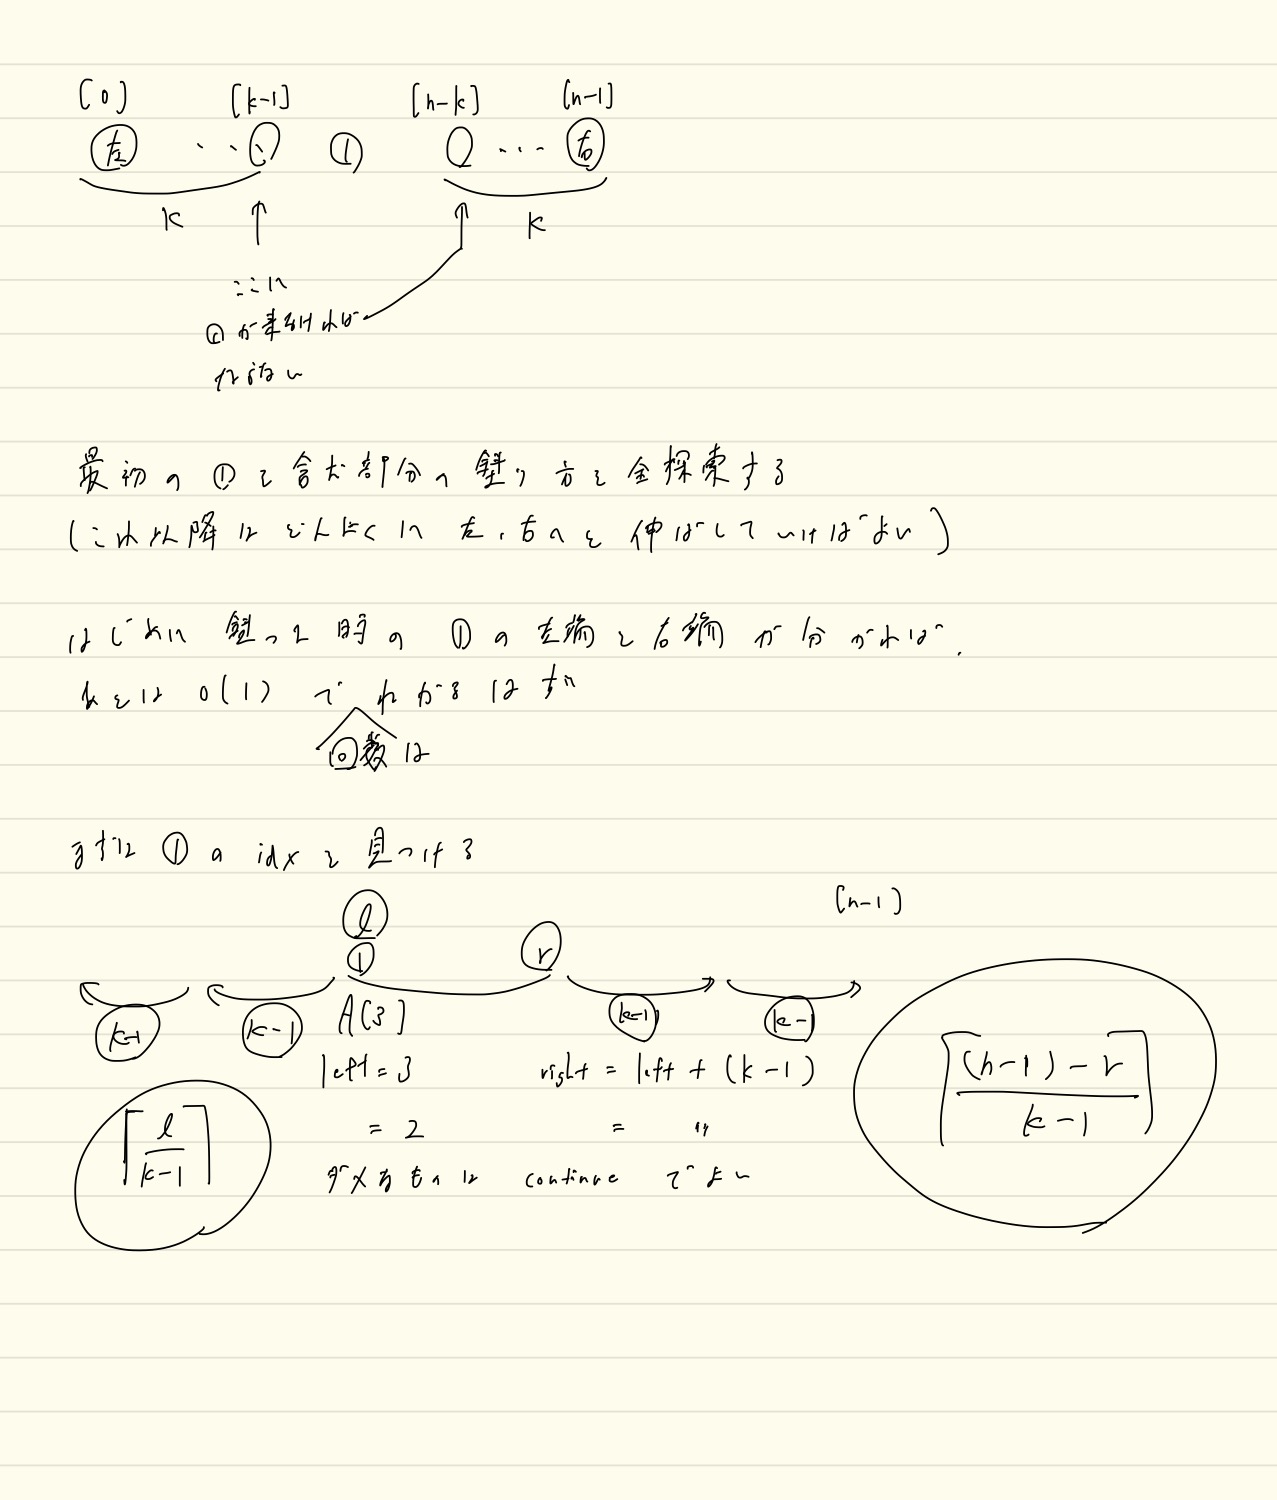 [0] [k-1] [n-k] [n-1]
左 ・・・ ① ・・・ 右
k k
ここに
①が来なければ
ならない
最初の①を含む部分の塗り方を全探索する
(これ以降はどんよくに左、右へと伸ばしていけばよい)
はじめに塗った時の①の左端と右端が分かれば、
あとは O(1) でわかるはず
回数は
まずは①の idx を見つける
[n-1]
l
① r
k-1 k-1 A[3] k-1 k-1
left = 3 right = left + (k-1)
⌈l/(k-1)⌉ ⌈((n-1)-r)/(k-1)⌉
= 2 = 〃
ダメなものは continue でよい